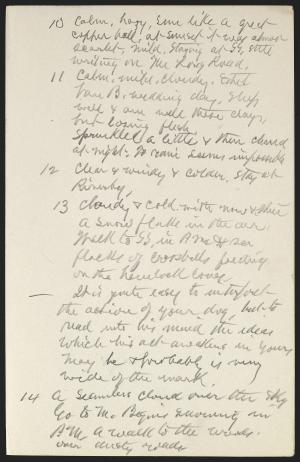 10 Calm, hazy, Sun like a great
copper ball, at sunset it was almost
scarlet, mild. Staying at SS, still
writing on The Long Road.
11 Calm, mild, cloudy.
wedding day. Sleep
well & am well these days,
but losing flesh.
Sprinkled a little & then cleared
at night. To rain seems impossible
12 Clear & windy & colder, stay at
Riverby.
13 Cloudy & cold with now & then
a snow flake in the air.
Walk to SS, in P.M. & see
flocks of crossbills feeding
on the hemlock cones.
— It is quite easy to interpret
the actions of your dog, but to
read into his mind the ideas
which his act awakens in yours
may be & probably is very
wide of the mark.
14 A Seamless cloud over the sky
Go to Mr. evening, in
P.M. a walk to the woods
over dusty roads